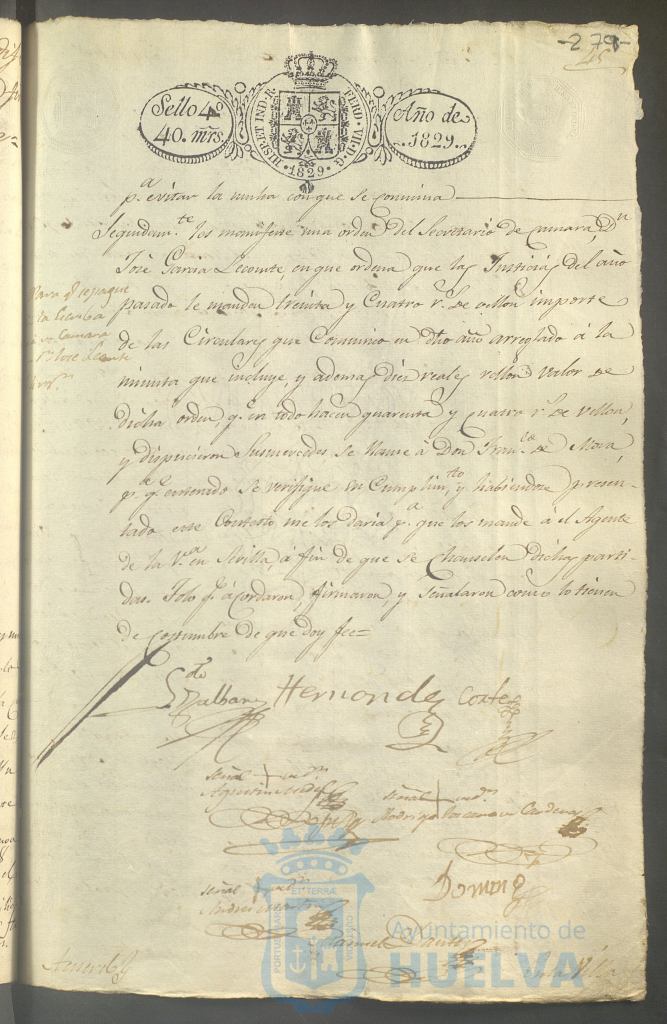 -279-
Sello 4º
40. mrs.
HISP. ET IND. R.
FERD. VII. D. G.
1829
Año de
1829.
pª evitar la multa con que se comina
Segundamte les manifesté una orden del Secretario de Camara, Dn
José Garcia Lecomte, en que ordena que las Justicias del año
pasado le manden treinta y Cuatro rs. De vellon importe
de las Circulares que Comunicó en dho año arreglado á la
minuta que incluye, y ademas diez reales vellon valor De
dicha orden, q. en todo hacen quarenta y quatro rs. De vellon,
y dispusieron Susmercedes se llame á Don Franco De Mora,
pª q. enterado se verifique su Cumplimto, y habiendose presen-
tado este Contestó me los daria pª que los mande á el Agente
de la Vª en Sevilla, á fin de que se chanselen dichas parti-
das. Todo q. acordaron, firmaron, y señalaron como lo tienen
de costumbre de que doy fee=
Para q. se pague
la Escriba
Camara
Dn Jose Lecomte
Hernandez Corte
señal + de
Agustin
señal +
Rodrigo Cardenas
señal
Andres
Doming
Manuel
PORTUS MARIS ET TERRAE CUSTODIA
Ayuntamiento de
HUELVA